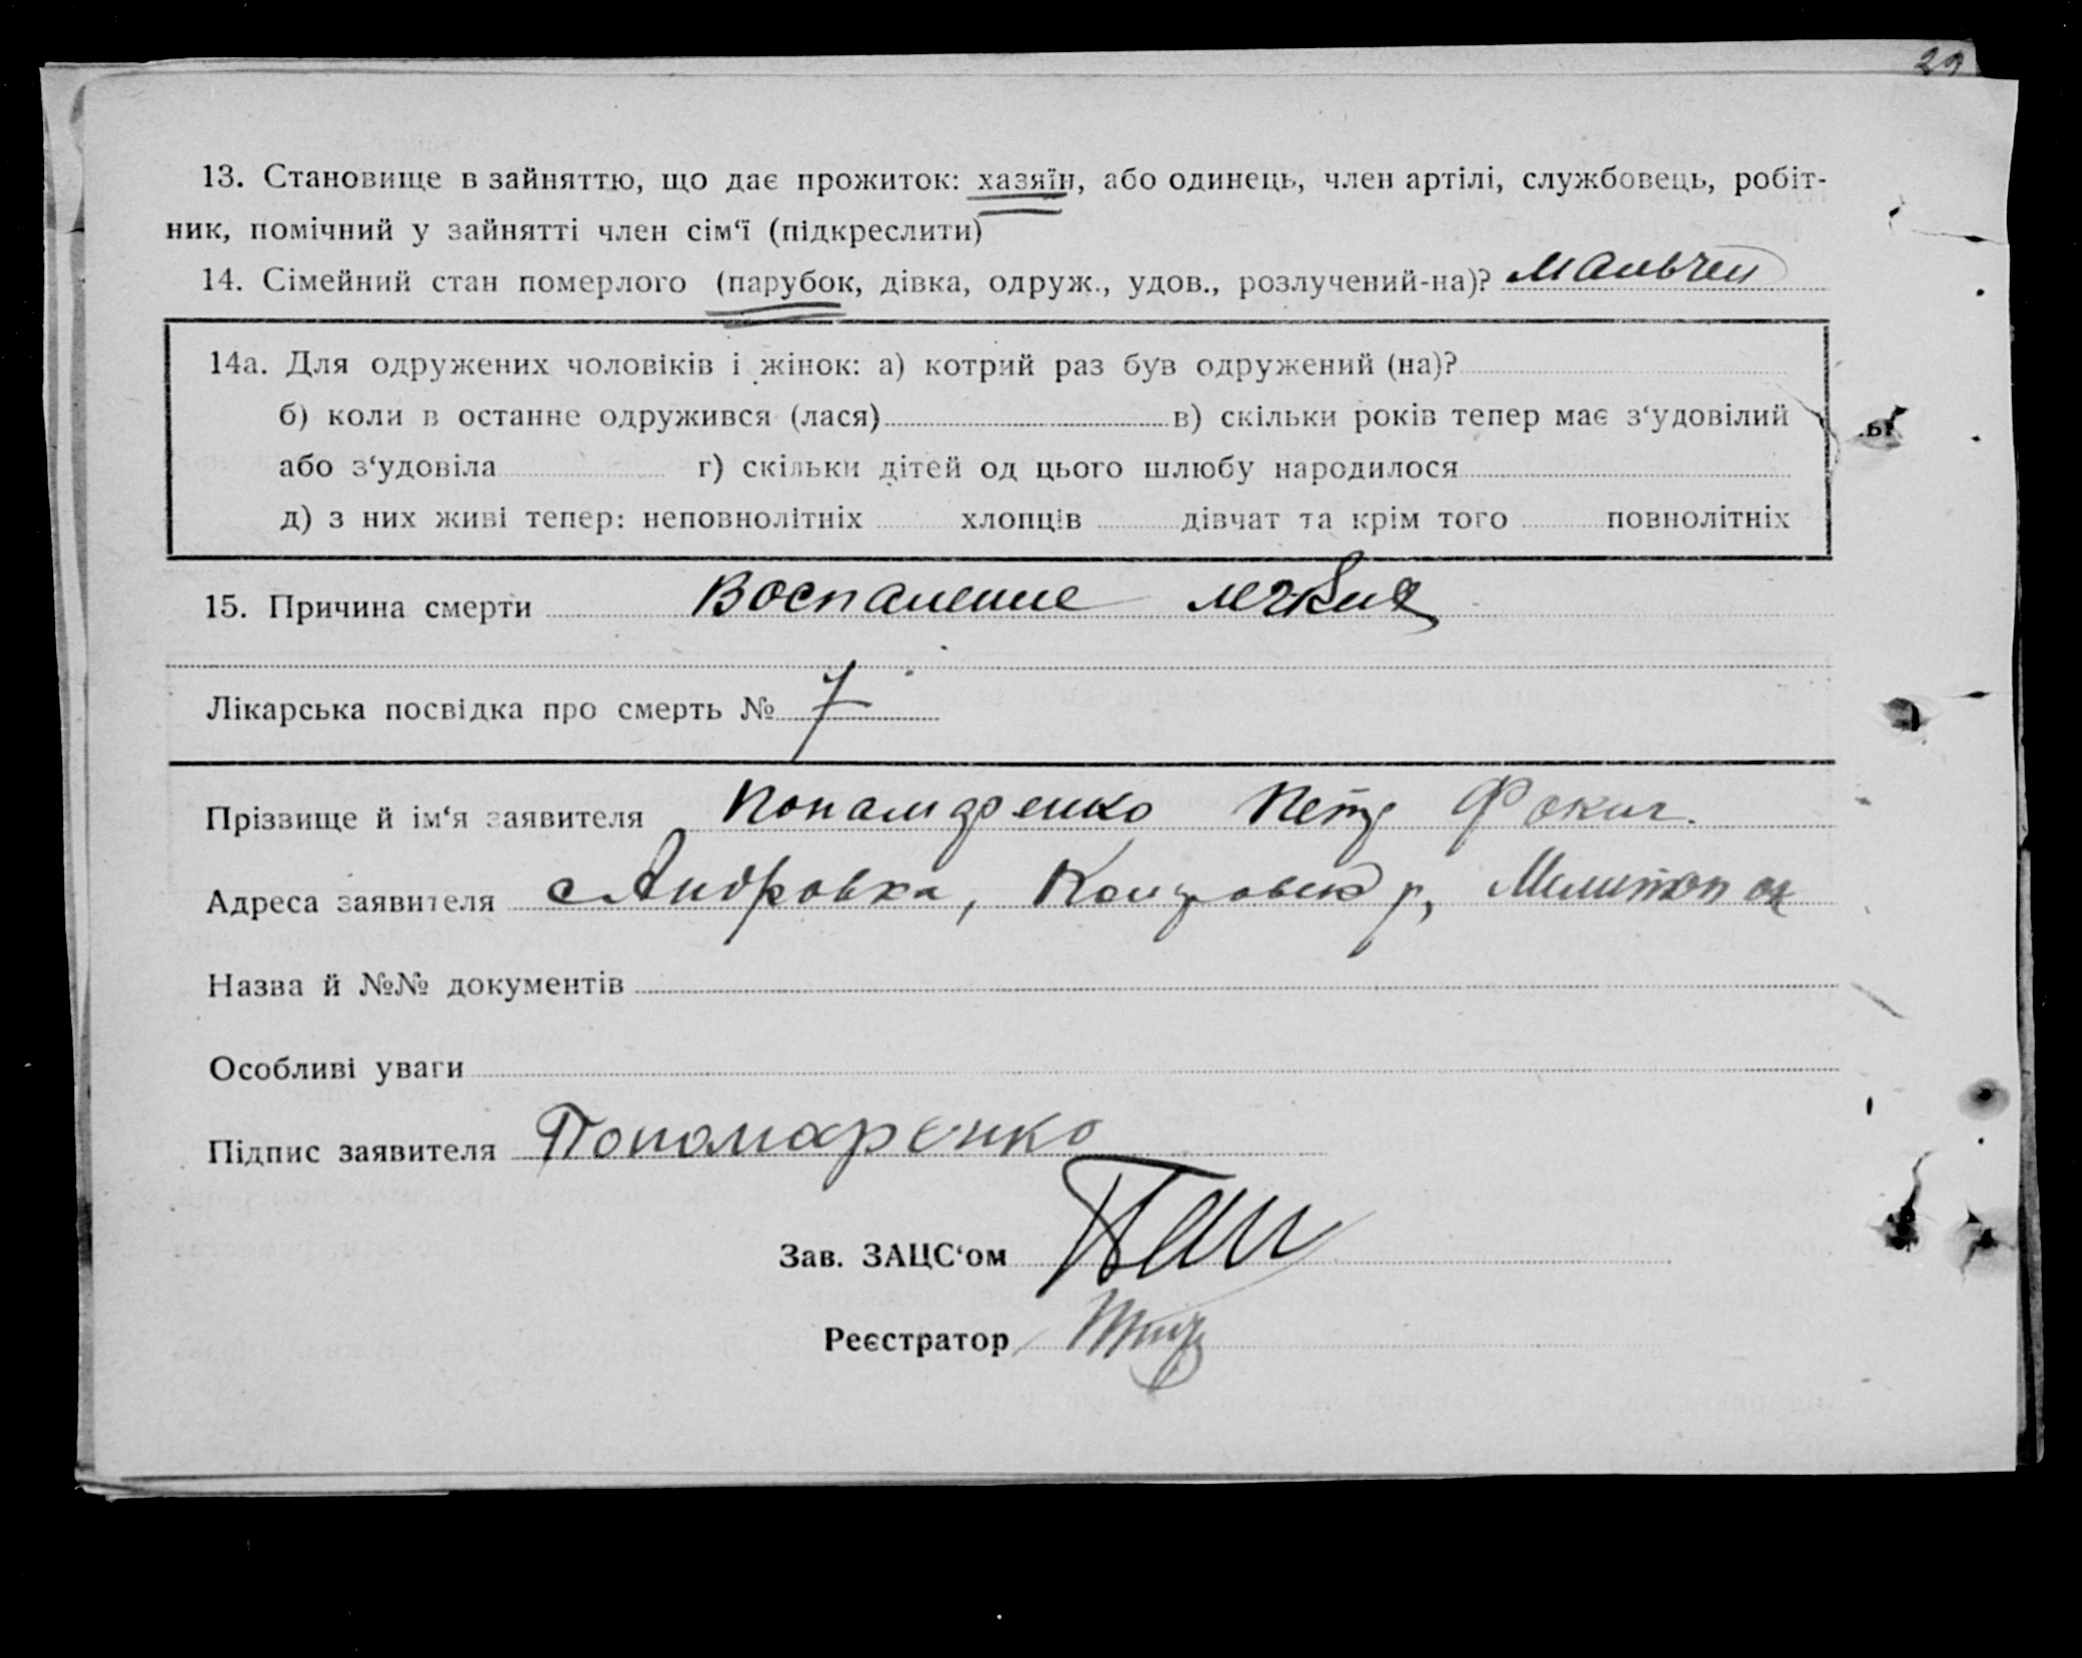 29
13. Становище в зайняттю, що дає прожиток: хазяїн, або одинець, член артілі, службовець, робіт-
ник, помічний у зайнятті член сім‘ї (підкреслити)
14. Сімейний стан померлого (парубок, дівка, одруж., удов., розлучений-на)? Мальчик
14а. Для одружених чоловіків і жінок: а) котрий раз був одружений (на)?
б) коли в останне одружився (лася) в) скільки років тепер має з‘удовілий
або з‘удовіла г) скільки дітей од цього шлюбу народилося
д) з них живі тепер: неповнолітніх хлопців дівчат та крім того повнолітніх
15. Причина смерти Воспаление легких
Лікарська посвідка про смерть № 7
Прізвище й ім‘я заявителя Понамаренко Петр Фокич.
Адреса заявителя с Андровка, р, Мелитопол
Назва й №№ документів
Особливі уваги
Підпис заявителя Пономаренко
Зав. ЗАЦС‘ом
Реєстратор